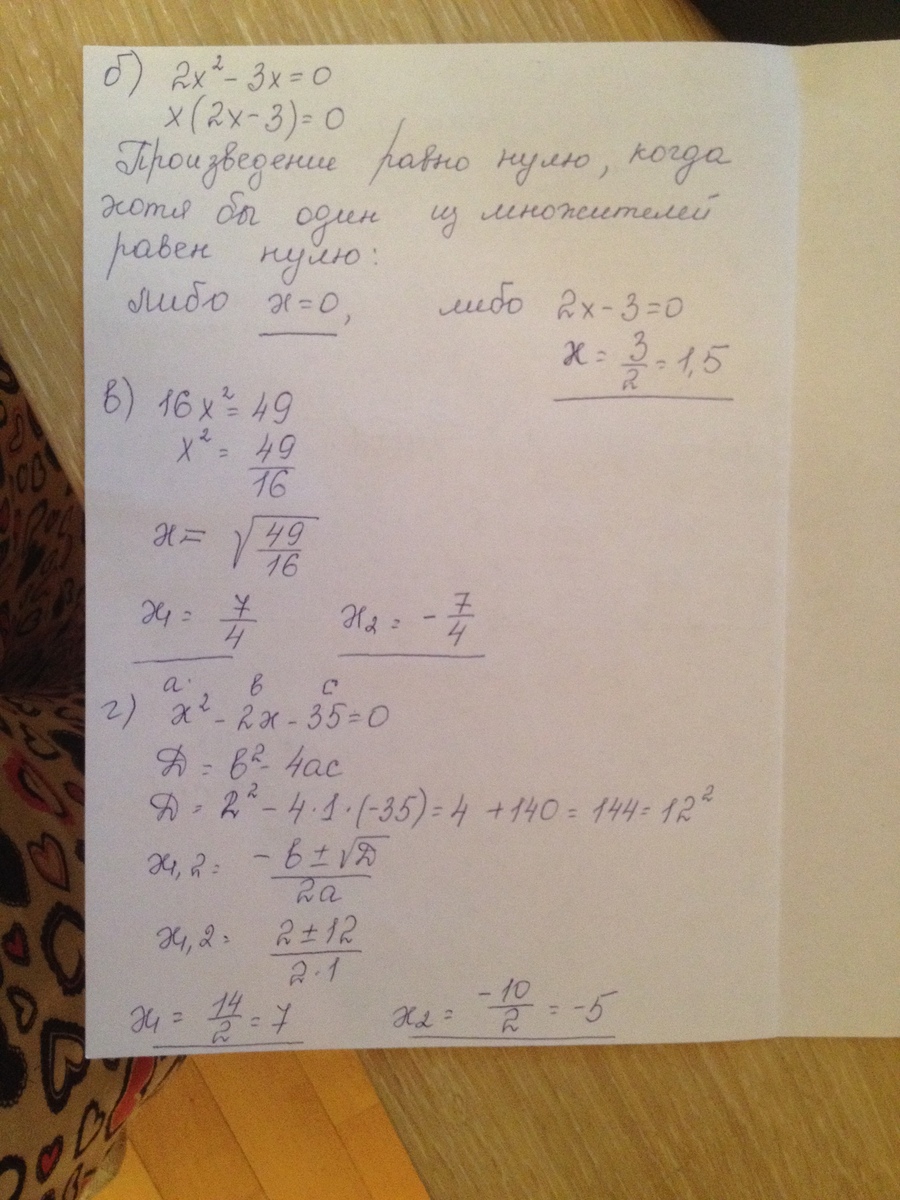 б) 2x² - 3x = 0
x(2x-3) = 0
Произведение равно нулю, когда
хотя бы один из множителей
равен нулю:
либо x = 0, либо 2x - 3 = 0
x = 3/2 = 1,5
в) 16x² = 49
x² = 49/16
x = √(49/16)
x₁ = 7/4 x₂ = - 7/4
a b c
г) x² - 2x - 35 = 0
Д = b² - 4ac
Д = 2² - 4·1·(-35) = 4 + 140 = 144 = 12²
x₁,₂ = (- b ± √Д)/2a
x₁,₂ = (2 ± 12)/(2·1)
x₁ = 14/2 = 7 x₂ = -10/2 = -5